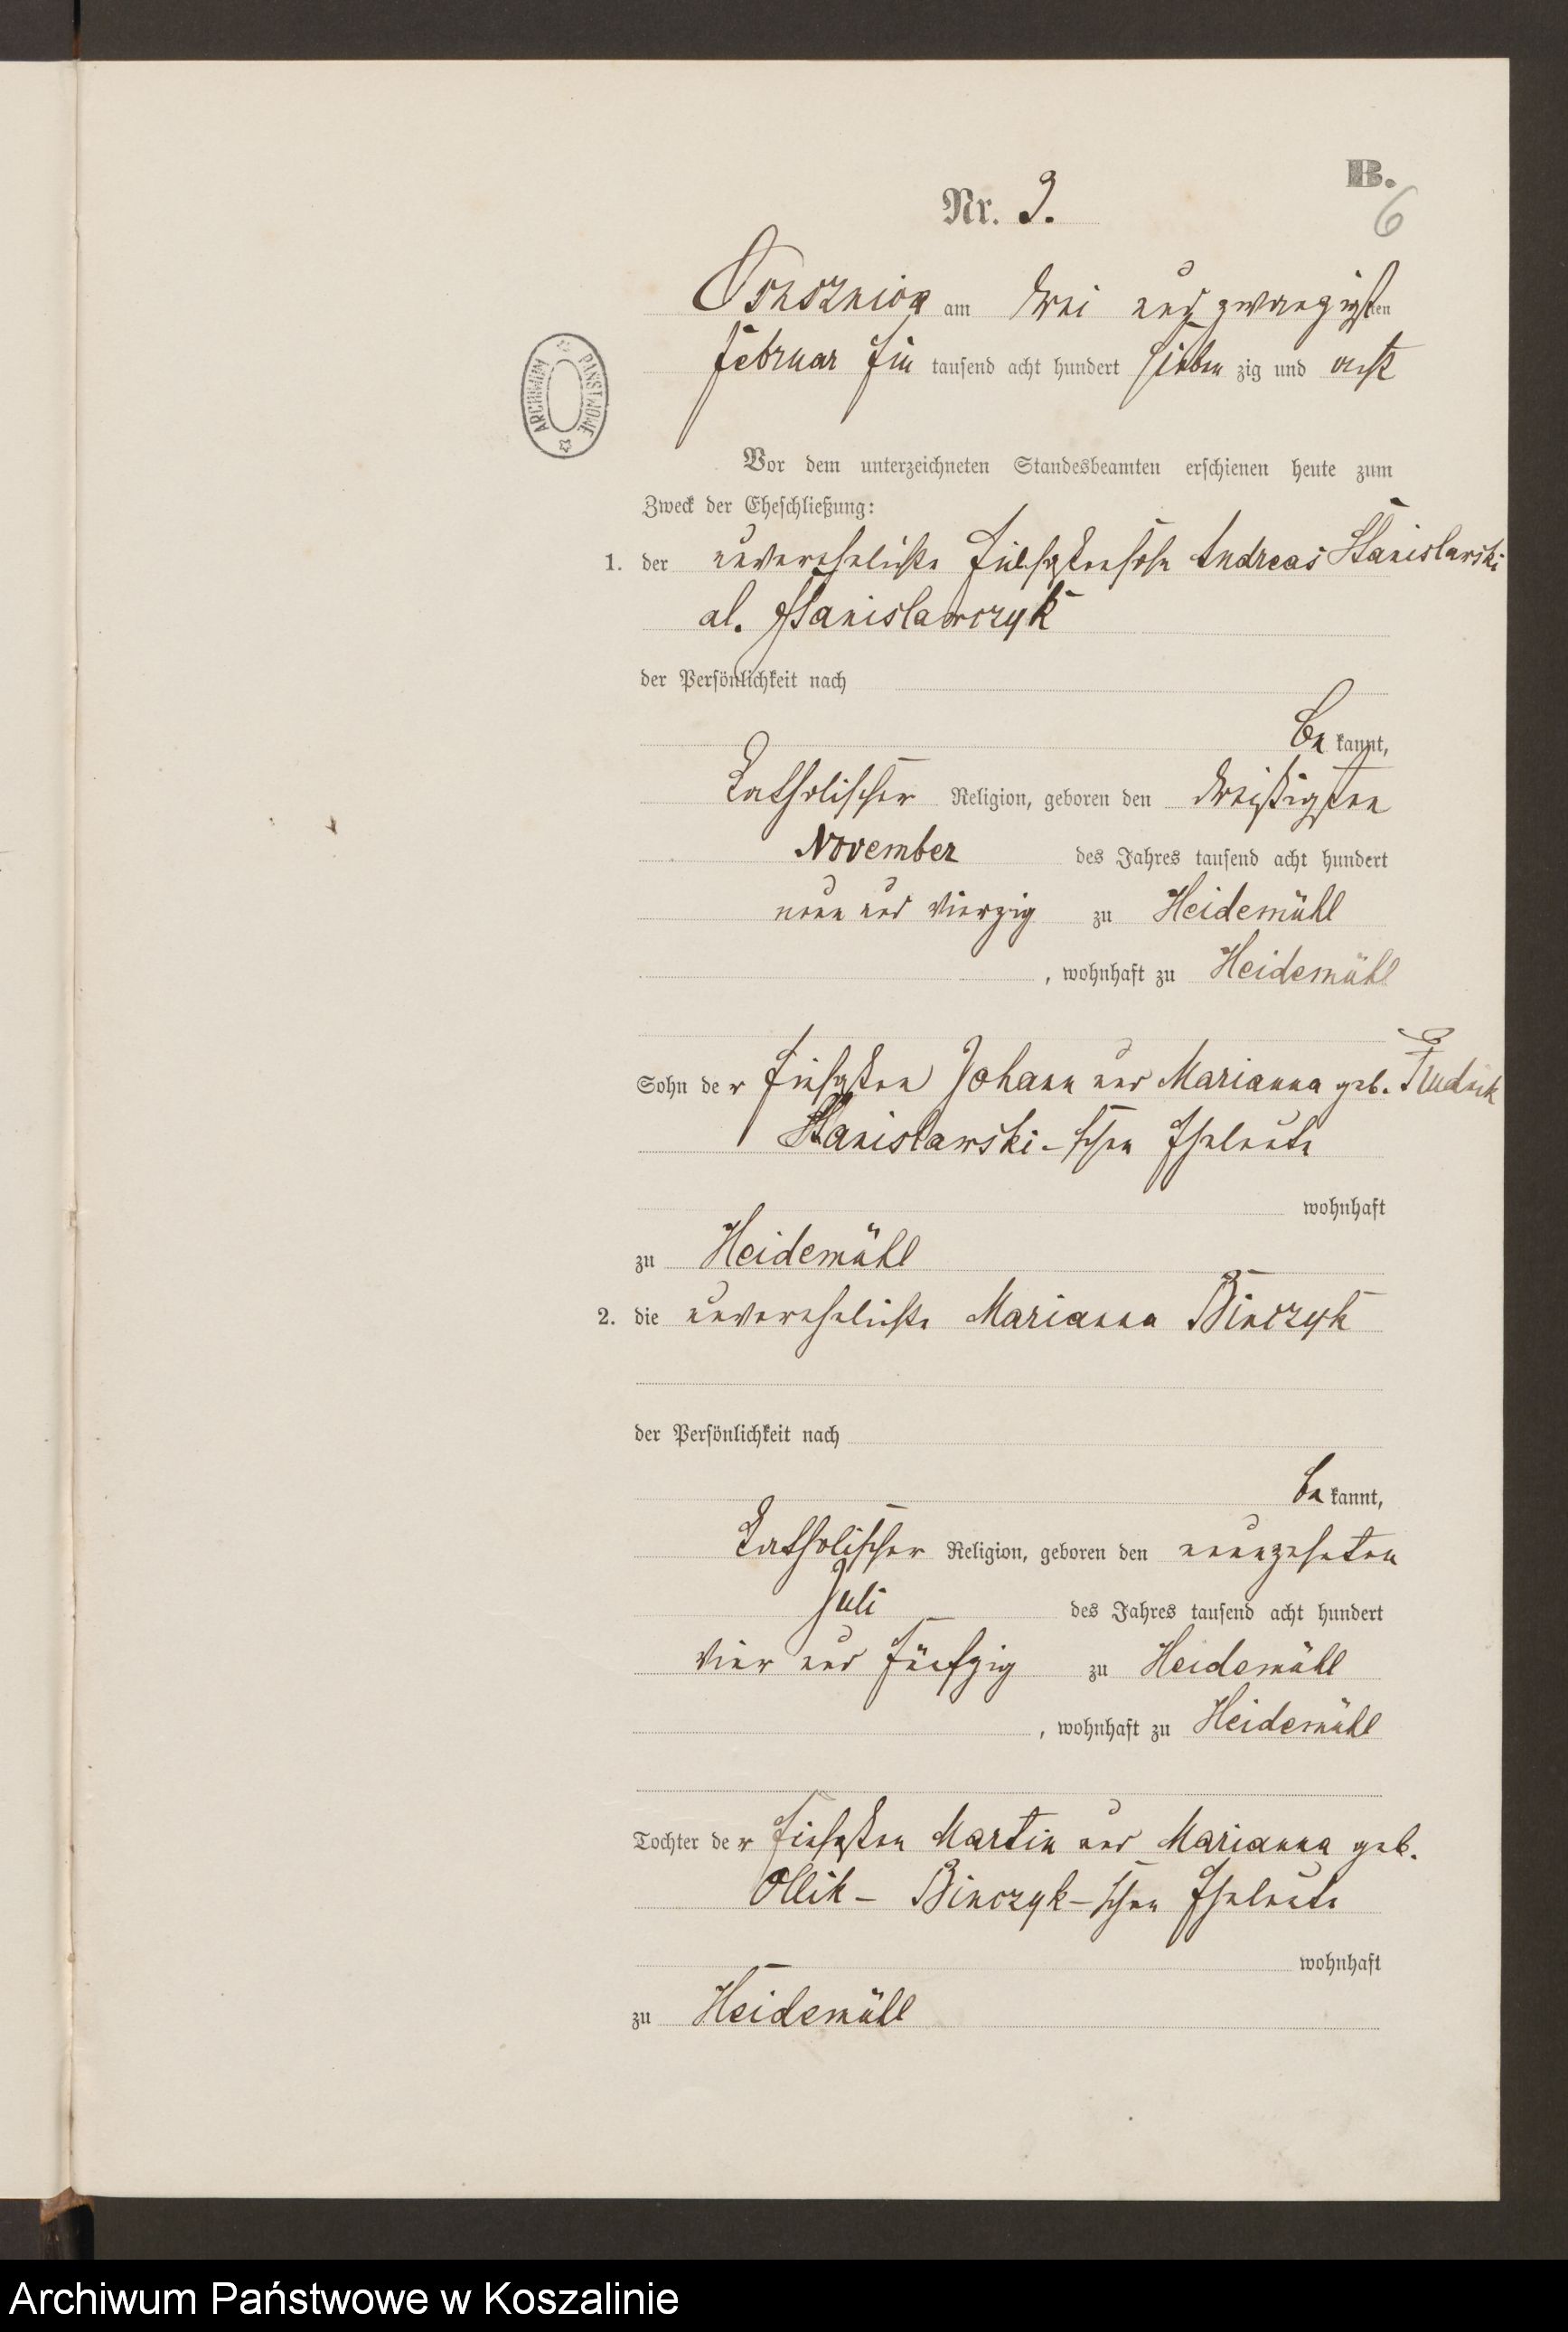 B.
Nr. 3.
6
Ossusznica am drei und zwanzigsten
Februar Ein tausend acht hundert sieben zig und acht
ARCHIWUM PAŃSTWOWE
Vor dem unterzeichneten Standesbeamten erschienen heute zum
Zweck der Eheschließung:
1. der unverehelichte Andreas Stanislawski
al. Stanislawczyk
der Persönlichkeit nach
be kannt,
katholischer Religion, geboren den dreißigsten
November des Jahres tausend acht hundert
neun und vierzig zu Heidemühl
, wohnhaft zu Heidemühl
Sohn der Johann und Marianna geb.
Stanislawski-schen Eheleute
wohnhaft
zu Heidemühl
2. die unverehelichte Marianna Binczyk
der Persönlichkeit nach
be kannt,
katholischer Religion, geboren den neunzehnten
Juli des Jahres tausend acht hundert
vier und fünfzig zu Heidemühl
, wohnhaft zu Heidemühl
Tochter der Martin und Marianna geb.
Ollik- Binczyk-schen Eheleute
wohnhaft
zu Heidemühl
Archiwum Państwowe w Koszalinie